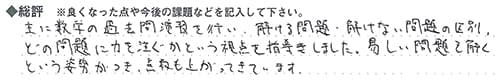 ◆総評 ※良くなった点や今後の課題などを記入して下さい。
主に数学の過去問演習を行い、解ける問題・解けない問題の区別、
どの問題に力を注ぐかという視点を指導しました。易しい問題を解く
という姿勢がつき、点数も上がってきています。